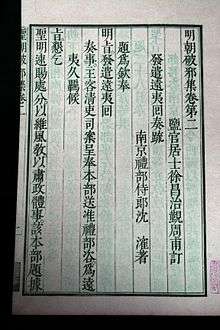 明朝破邪集卷第二
鹽官居士徐昌治覲周甫訂
發遣遠夷回奏疏
南京禮部侍郎沈㴶著
題爲欽奉
明旨發遣遠夷回
奏事主客清吏司案呈奉本部送准禮部咨爲遠
夷久羈候
旨懇乞
聖明速賜處分以維風教以肅政體事該本部題據
聖朝破邪集卷二